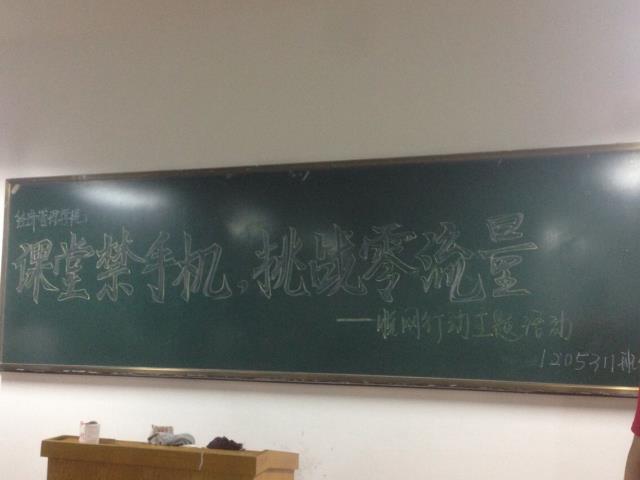 经济管理学院
课堂禁手机，挑战零流量
——脱网行动主题活动
1205311班